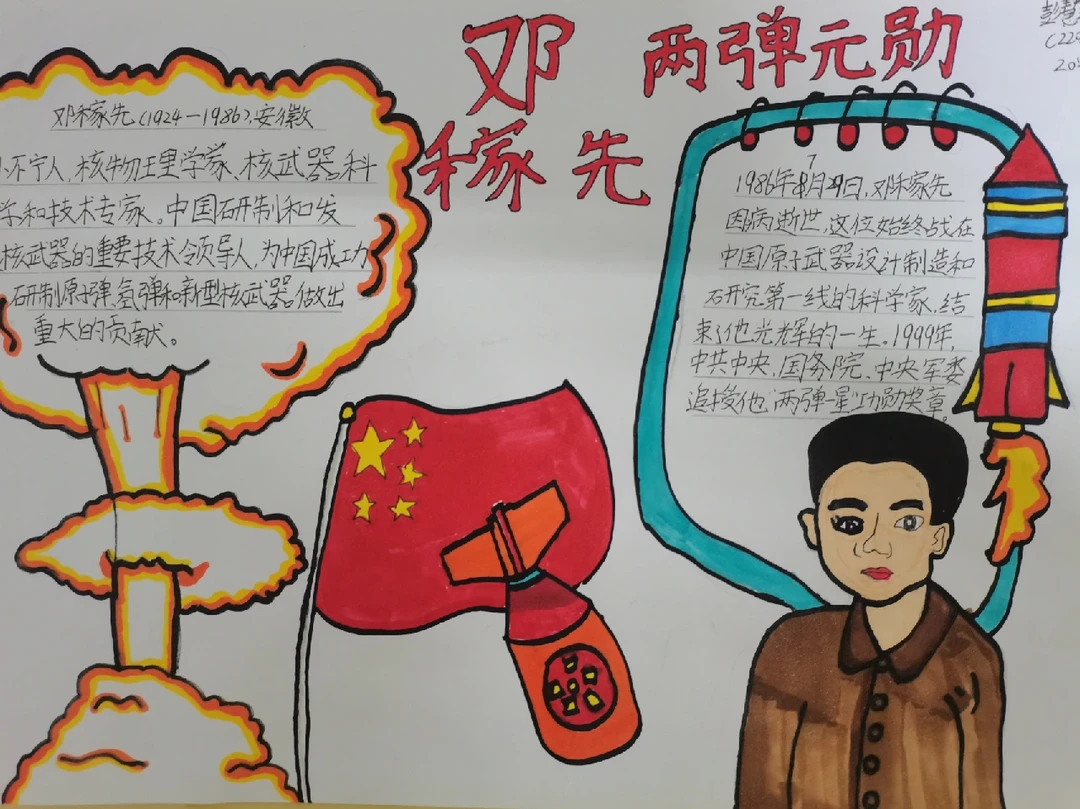 邓稼先
两弹元勋
彭慧
邓稼先(1924—1986),安徽
怀宁人,核物理学家、核武器科
学和技术专家。中国研制和发
核武器的重要技术领导人,为中国成功
研制原子弹、氢弹和新型核武器做出
重大的贡献。
1986年7月29日,邓稼先
因病逝世,这位始终战在
中国原子武器设计制造和
研究第一线的科学家,结
束了他光辉的一生。1999年,
中共中央、国务院、中央军委
追授他“两弹一星”功勋奖章。